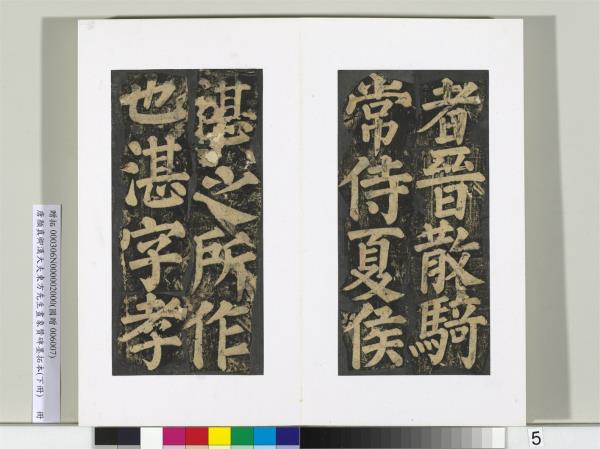 者晉散騎
常侍夏侯
湛之所作
也湛字孝
贈拓 000306N000002000(國贈 006007)
唐顏真卿漢大夫東方先生畫象贊碑墨拓本(下冊) 冊
5